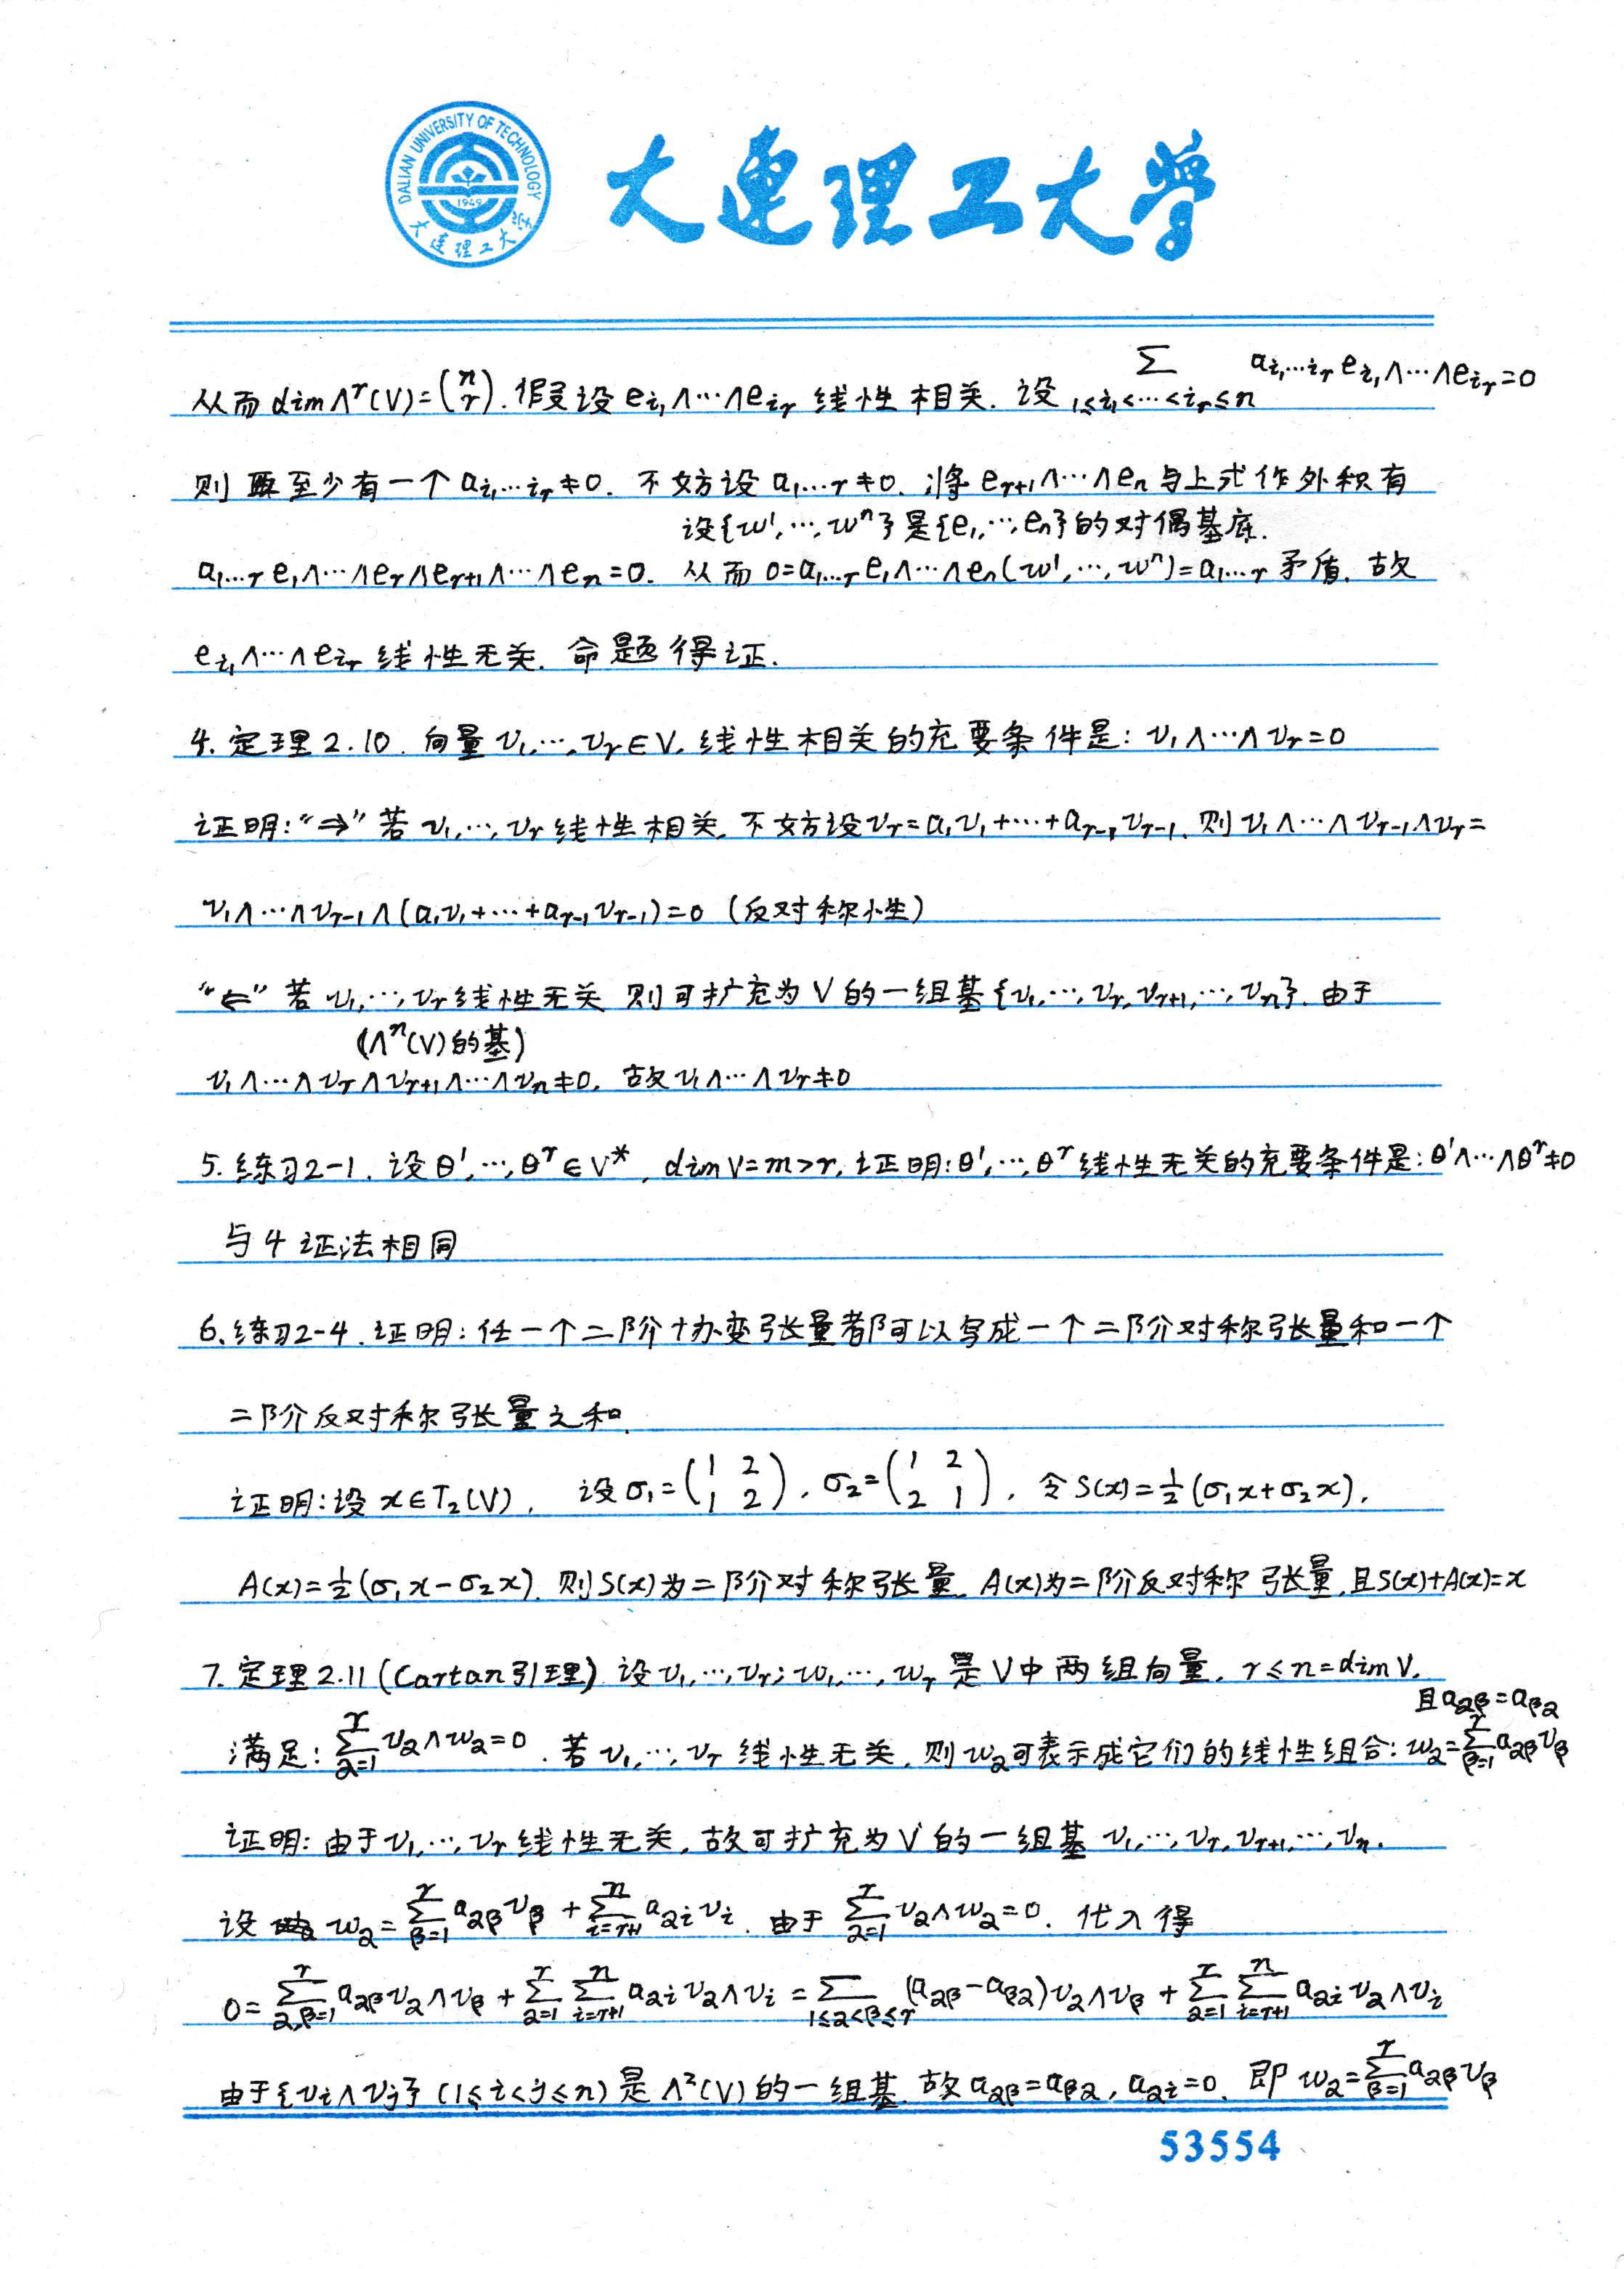 DALIAN UNIVERSITY OF TECHNOLOGY
1949
大连理工大学
大连理工大学
从而 dim Λ^r(V)=(n r). 假设 e_{i₁}∧⋯∧e_{i_r} 线性相关. 设 Σ_{1≤i₁<⋯<i_r≤n} a_{i₁⋯i_r} e_{i₁}∧⋯∧e_{i_r}=0
则至少有一个 a_{i₁⋯i_r}≠0. 不妨设 a_{1⋯r}≠0. 将 e_{r+1}∧⋯∧e_n 与上式作外积有
设{w¹,⋯,wⁿ}是{e₁,⋯,e_n}的对偶基底.
a_{1⋯r} e₁∧⋯∧e_r∧e_{r+1}∧⋯∧e_n=0. 从而 0=a_{1⋯r} e₁∧⋯∧e_n(w¹,⋯,wⁿ)=a_{1⋯r} 矛盾. 故
e_{i₁}∧⋯∧e_{i_r} 线性无关. 命题得证.
4. 定理 2.10. 向量 v₁,⋯,v_r∈V, 线性相关的充要条件是: v₁∧⋯∧v_r=0
证明: “⇒” 若 v₁,⋯,v_r 线性相关, 不妨设 v_r=a₁v₁+⋯+a_{r-1}v_{r-1}. 则 v₁∧⋯∧v_{r-1}∧v_r=
v₁∧⋯∧v_{r-1}∧(a₁v₁+⋯+a_{r-1}v_{r-1})=0 (反对称性)
“⇐” 若 v₁,⋯,v_r 线性无关 则可扩充为 V 的一组基 {v₁,⋯,v_r,v_{r+1},⋯,v_n}. 由于
(Λⁿ(V)的基)
v₁∧⋯∧v_r∧v_{r+1}∧⋯∧v_n≠0. 故 v₁∧⋯∧v_r≠0
5. 练习2-1. 设 θ¹,⋯,θ^r∈V*, dim V=m>r, 证明: θ¹,⋯,θ^r 线性无关的充要条件是: θ¹∧⋯∧θ^r≠0
与 4 证法相同
6. 练习2-4. 证明: 任一个二阶协变张量都可以写成一个二阶对称张量和一个
二阶反对称张量之和.
证明: 设 x∈T₂(V), 设 σ₁=(1 2; 1 2), σ₂=(1 2; 2 1), 令 S(x)=½(σ₁x+σ₂x),
A(x)=½(σ₁x-σ₂x). 则 S(x)为二阶对称张量, A(x)为二阶反对称张量, 且 S(x)+A(x)=x
7. 定理 2.11 (Cartan引理) 设 v₁,⋯,v_r; w₁,⋯,w_r 是 V 中两组向量, r≤n=dim V,
且 a_{αβ}=a_{βα}
满足: Σ_{α=1}^r v_α∧w_α=0. 若 v₁,⋯,v_r 线性无关, 则 w_α 可表示成它们的线性组合: w_α=Σ_{β=1}^r a_{αβ}v_β
证明: 由于 v₁,⋯,v_r 线性无关, 故可扩充为 V 的一组基 v₁,⋯,v_r,v_{r+1},⋯,v_n.
设 w_α=Σ_{β=1}^r a_{αβ}v_β+Σ_{i=r+1}^n a_{αi}v_i. 由于 Σ_{α=1}^r v_α∧w_α=0. 代入得
0=Σ_{α,β=1}^r a_{αβ}v_α∧v_β+Σ_{α=1}^r Σ_{i=r+1}^n a_{αi}v_α∧v_i=Σ_{1≤α<β≤r}(a_{αβ}-a_{βα})v_α∧v_β+Σ_{α=1}^r Σ_{i=r+1}^n a_{αi}v_α∧v_i
由于{v_i∧v_j} (1≤i<j≤n) 是 Λ²(V) 的一组基. 故 a_{αβ}=a_{βα}, a_{αi}=0. 即 w_α=Σ_{β=1}^r a_{αβ}v_β
53554